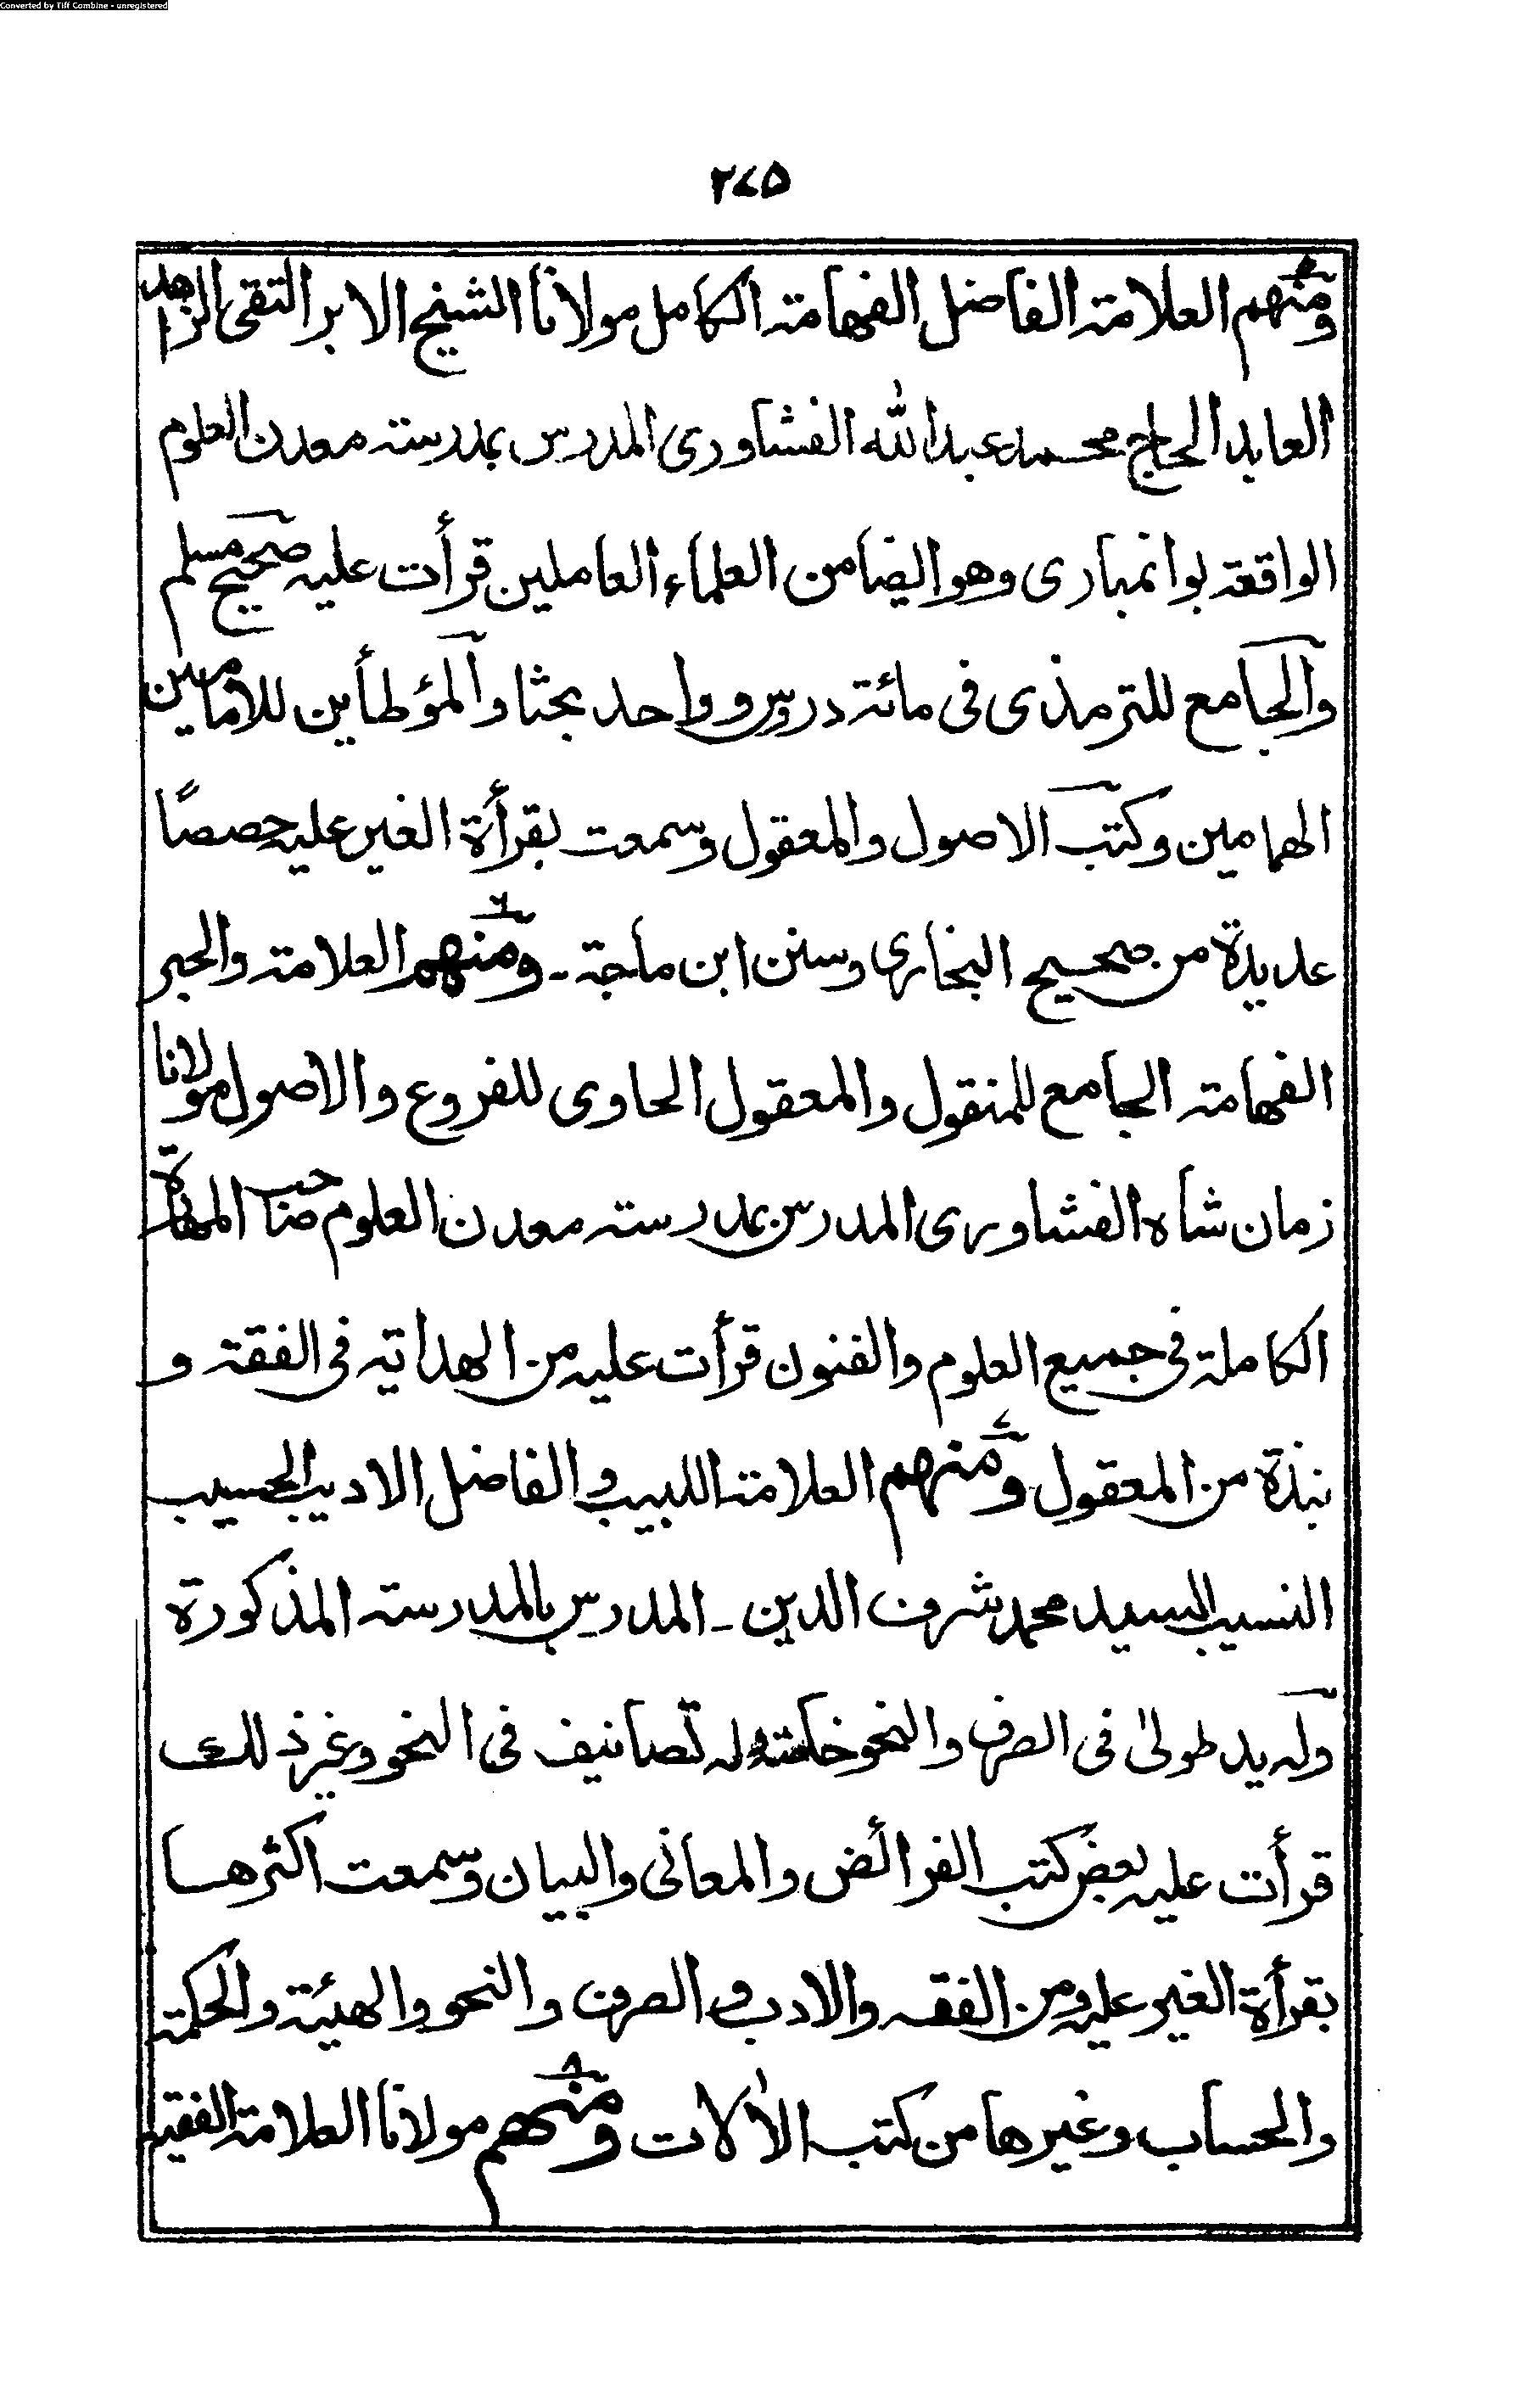 Converted by Tiff Combine - unregistered
۲۷۵
ومنهم العلامة الفاضل الفهامة الكامل مولانا الشيخ الابر التقى الزاهد
العابد الحاج محمد عبدالله الفشاورى المدرس بمدرسة معدن العلوم
الواقعة بوانمبارى وهو ايضا من العلماء العاملين قرأت عليه صحيح مسلم
والجامع للترمذى فى مائة دروس وواحد بحثا والمؤطأين للامامين
الهمامين وكتب الاصول والمعقول وسمعت بقرأة الغير عليه حصصًا
عديدة من صحيح البخارى وسنن ابن ماجة - ومنهم العلامة والحبر
الفهامة الجامع للمنقول والمعقول الحاوى للفروع والاصول مولانا
زمان شاه الفشاورى المدرس بمدرسة معدن العلوم صاحب المهارة
الكاملة فى جميع العلوم والفنون قرأت عليه من الهداية فى الفقه و
نبذة من المعقول ومنهم العلامة اللبيب والفاضل الاديب الحسيب
النسيب السيد محمد شرف الدين - المدرس بالمدرسة المذكورة
وله يد طولىٰ فى الصرف والنحو خاصة وله تصانيف فى النحو وغير ذلك
قرأت عليه بعض كتب الفرائض والمعانى والبيان وسمعت اكثرها
بقرأة الغير عليه ومن الفقه والادب و الصرف والنحو والهيئة والحكمة
والحساب وغيرها من كتب الاٰلات ومنهم مولانا العلامة الفقيه